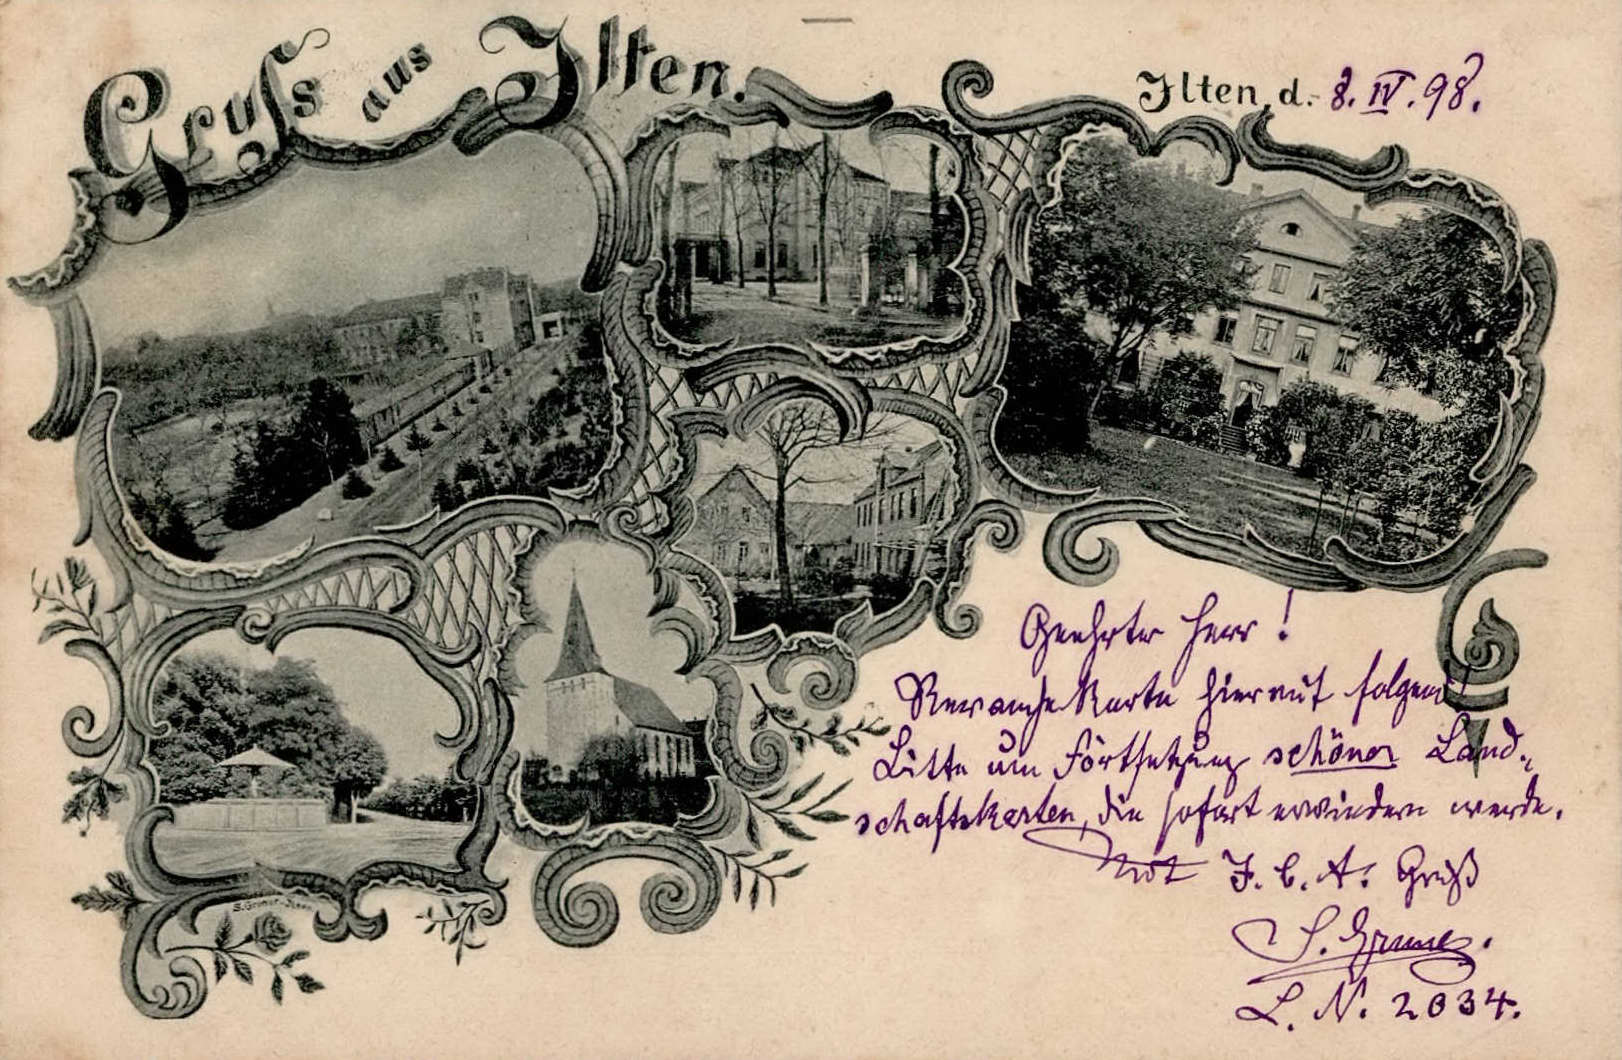 Gruss aus Ilten.
Ilten, d. 8. IV. 98.
Geehrter Herr!
Revanche-Karte hierauf folgend
Bitte um Fortsetzung schöner Land-
schaftskarten, die sofort erwiedern werde.
Mit I. C. A. Gruß
L. N. 2034.